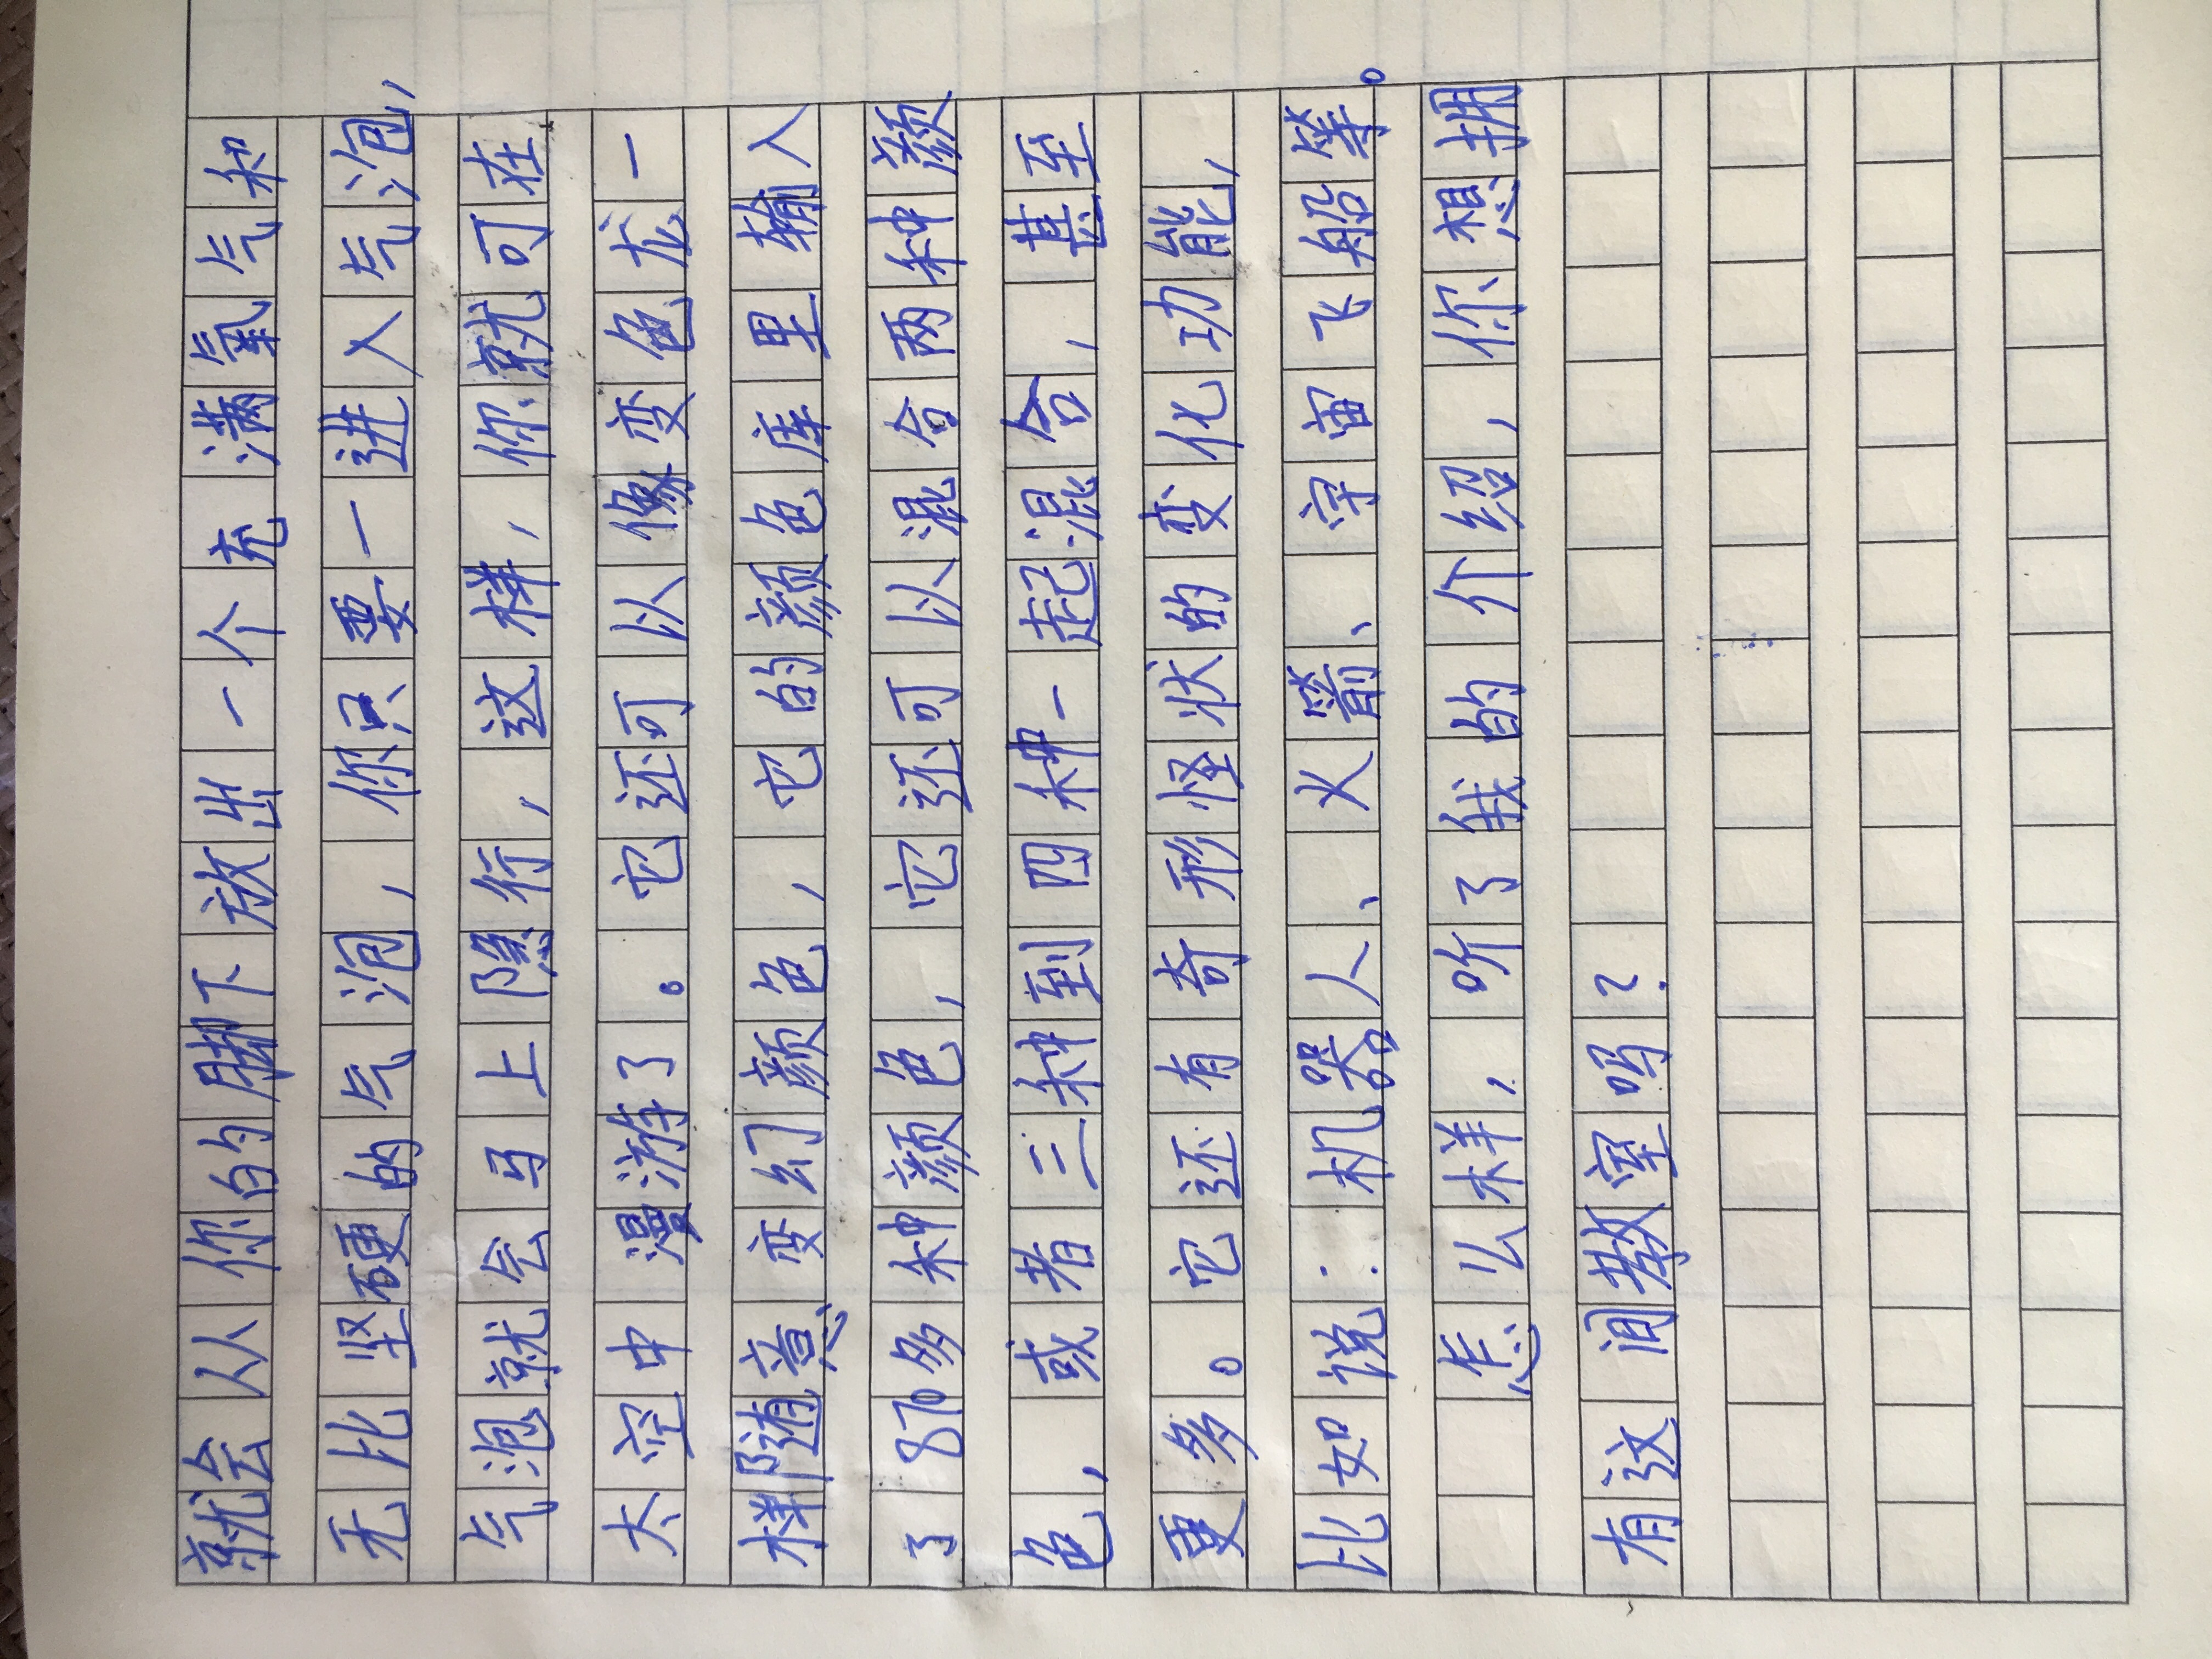 就会从你的脚下放出一个充满氧气和
无比坚硬的气泡，你只要一进入气泡，
气泡就会马上隐行，这样，你就可在
太空中漫游了。它还可以像变色龙一
样随意变幻颜色，它的颜色库里输入
了870多种颜色，它还可以混合两种颜
色，或者三种到四种一起混合，甚至
更多。它还有奇形怪状的变化功能，
比如说：机器人、火箭、宇宙飞船等。
怎么样，听了我的介绍，你想拥
有这间教室吗？